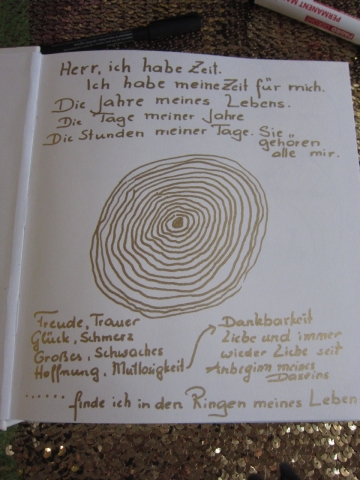 Herr, ich habe Zeit.
Ich habe meine Zeit für mich.
Die Jahre meines Lebens.
Die Tage meiner Jahre
Die Stunden meiner Tage. Sie
gehören
alle mir.
Freude, Trauer
Glück, Schmerz
Großes, Schwaches
Hoffnung, Mutlosigkeit
Dankbarkeit
Liebe und immer
wieder Liebe seit
Anbeginn meines
Daseins
...... finde ich in den Ringen meines Leben
PERMANENT